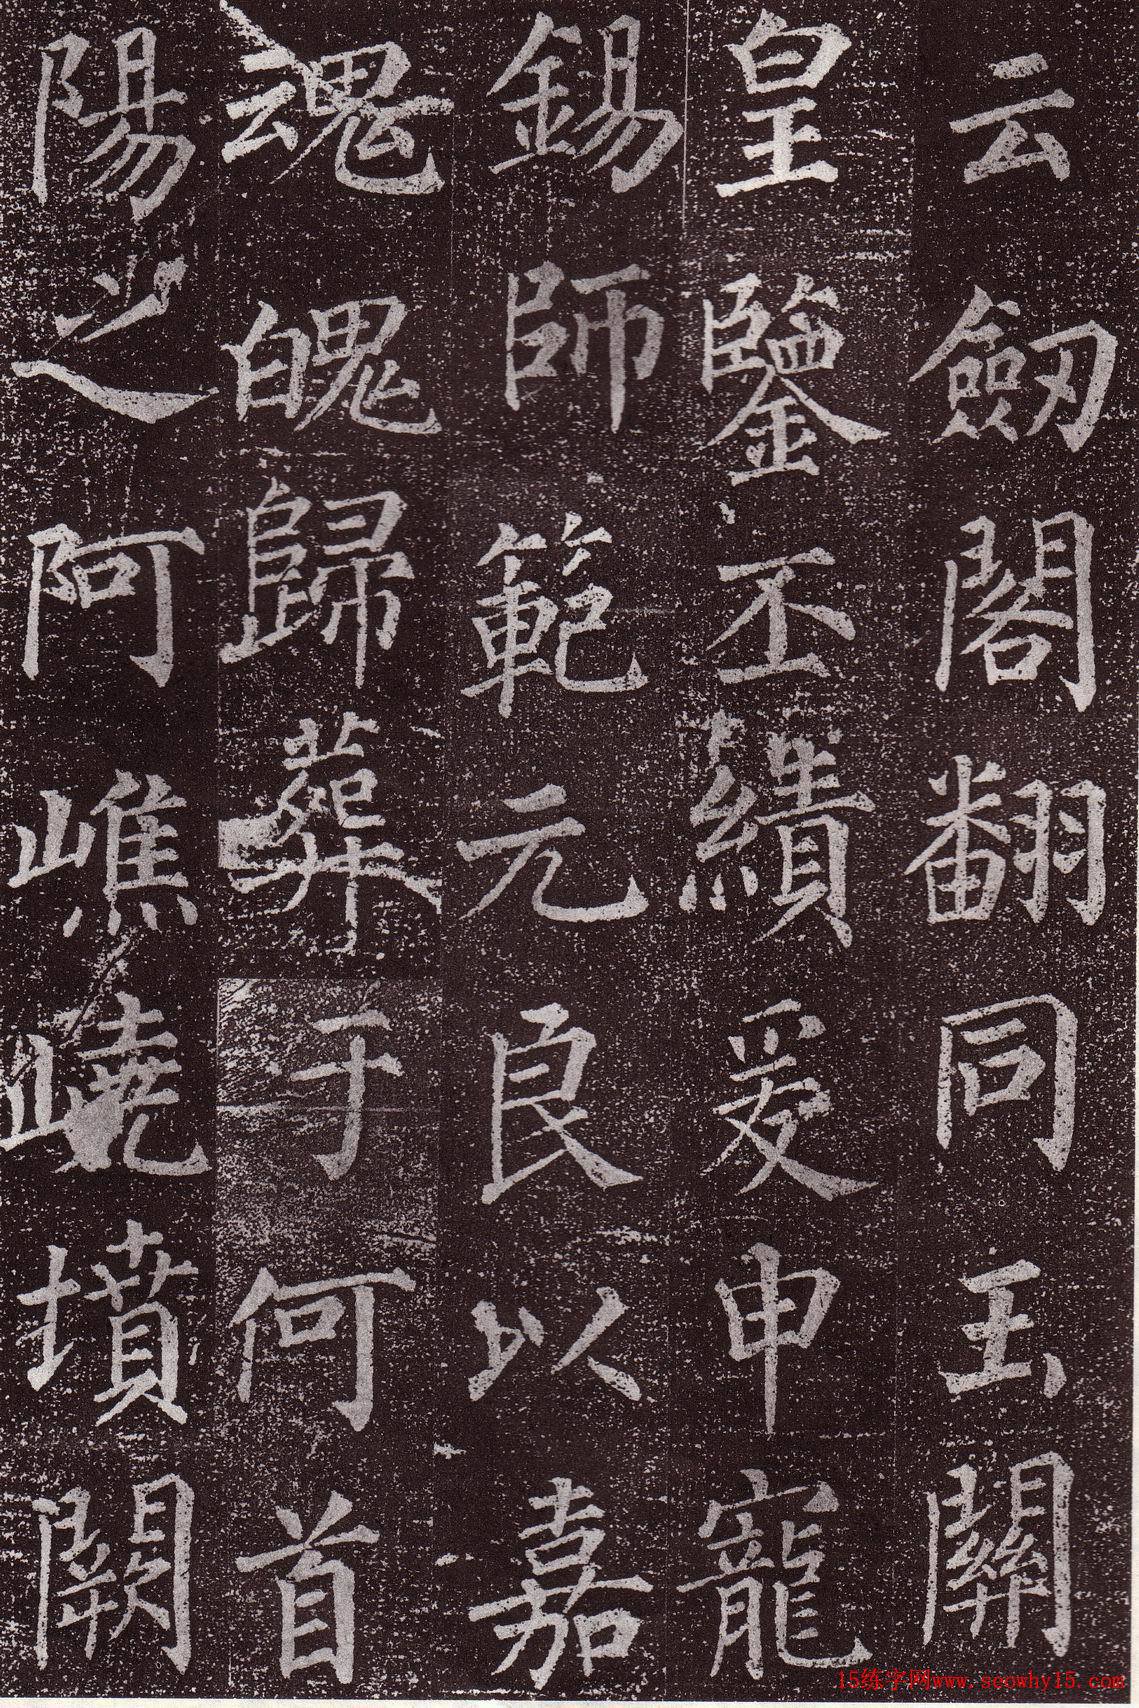 云劒閣翻同玉關
皇鑒丕績爰申寵
錫師範元良以嘉
魂魄歸葬于何首
陽之阿嶕嶢墳闕
15练字网www.scowhy15.com